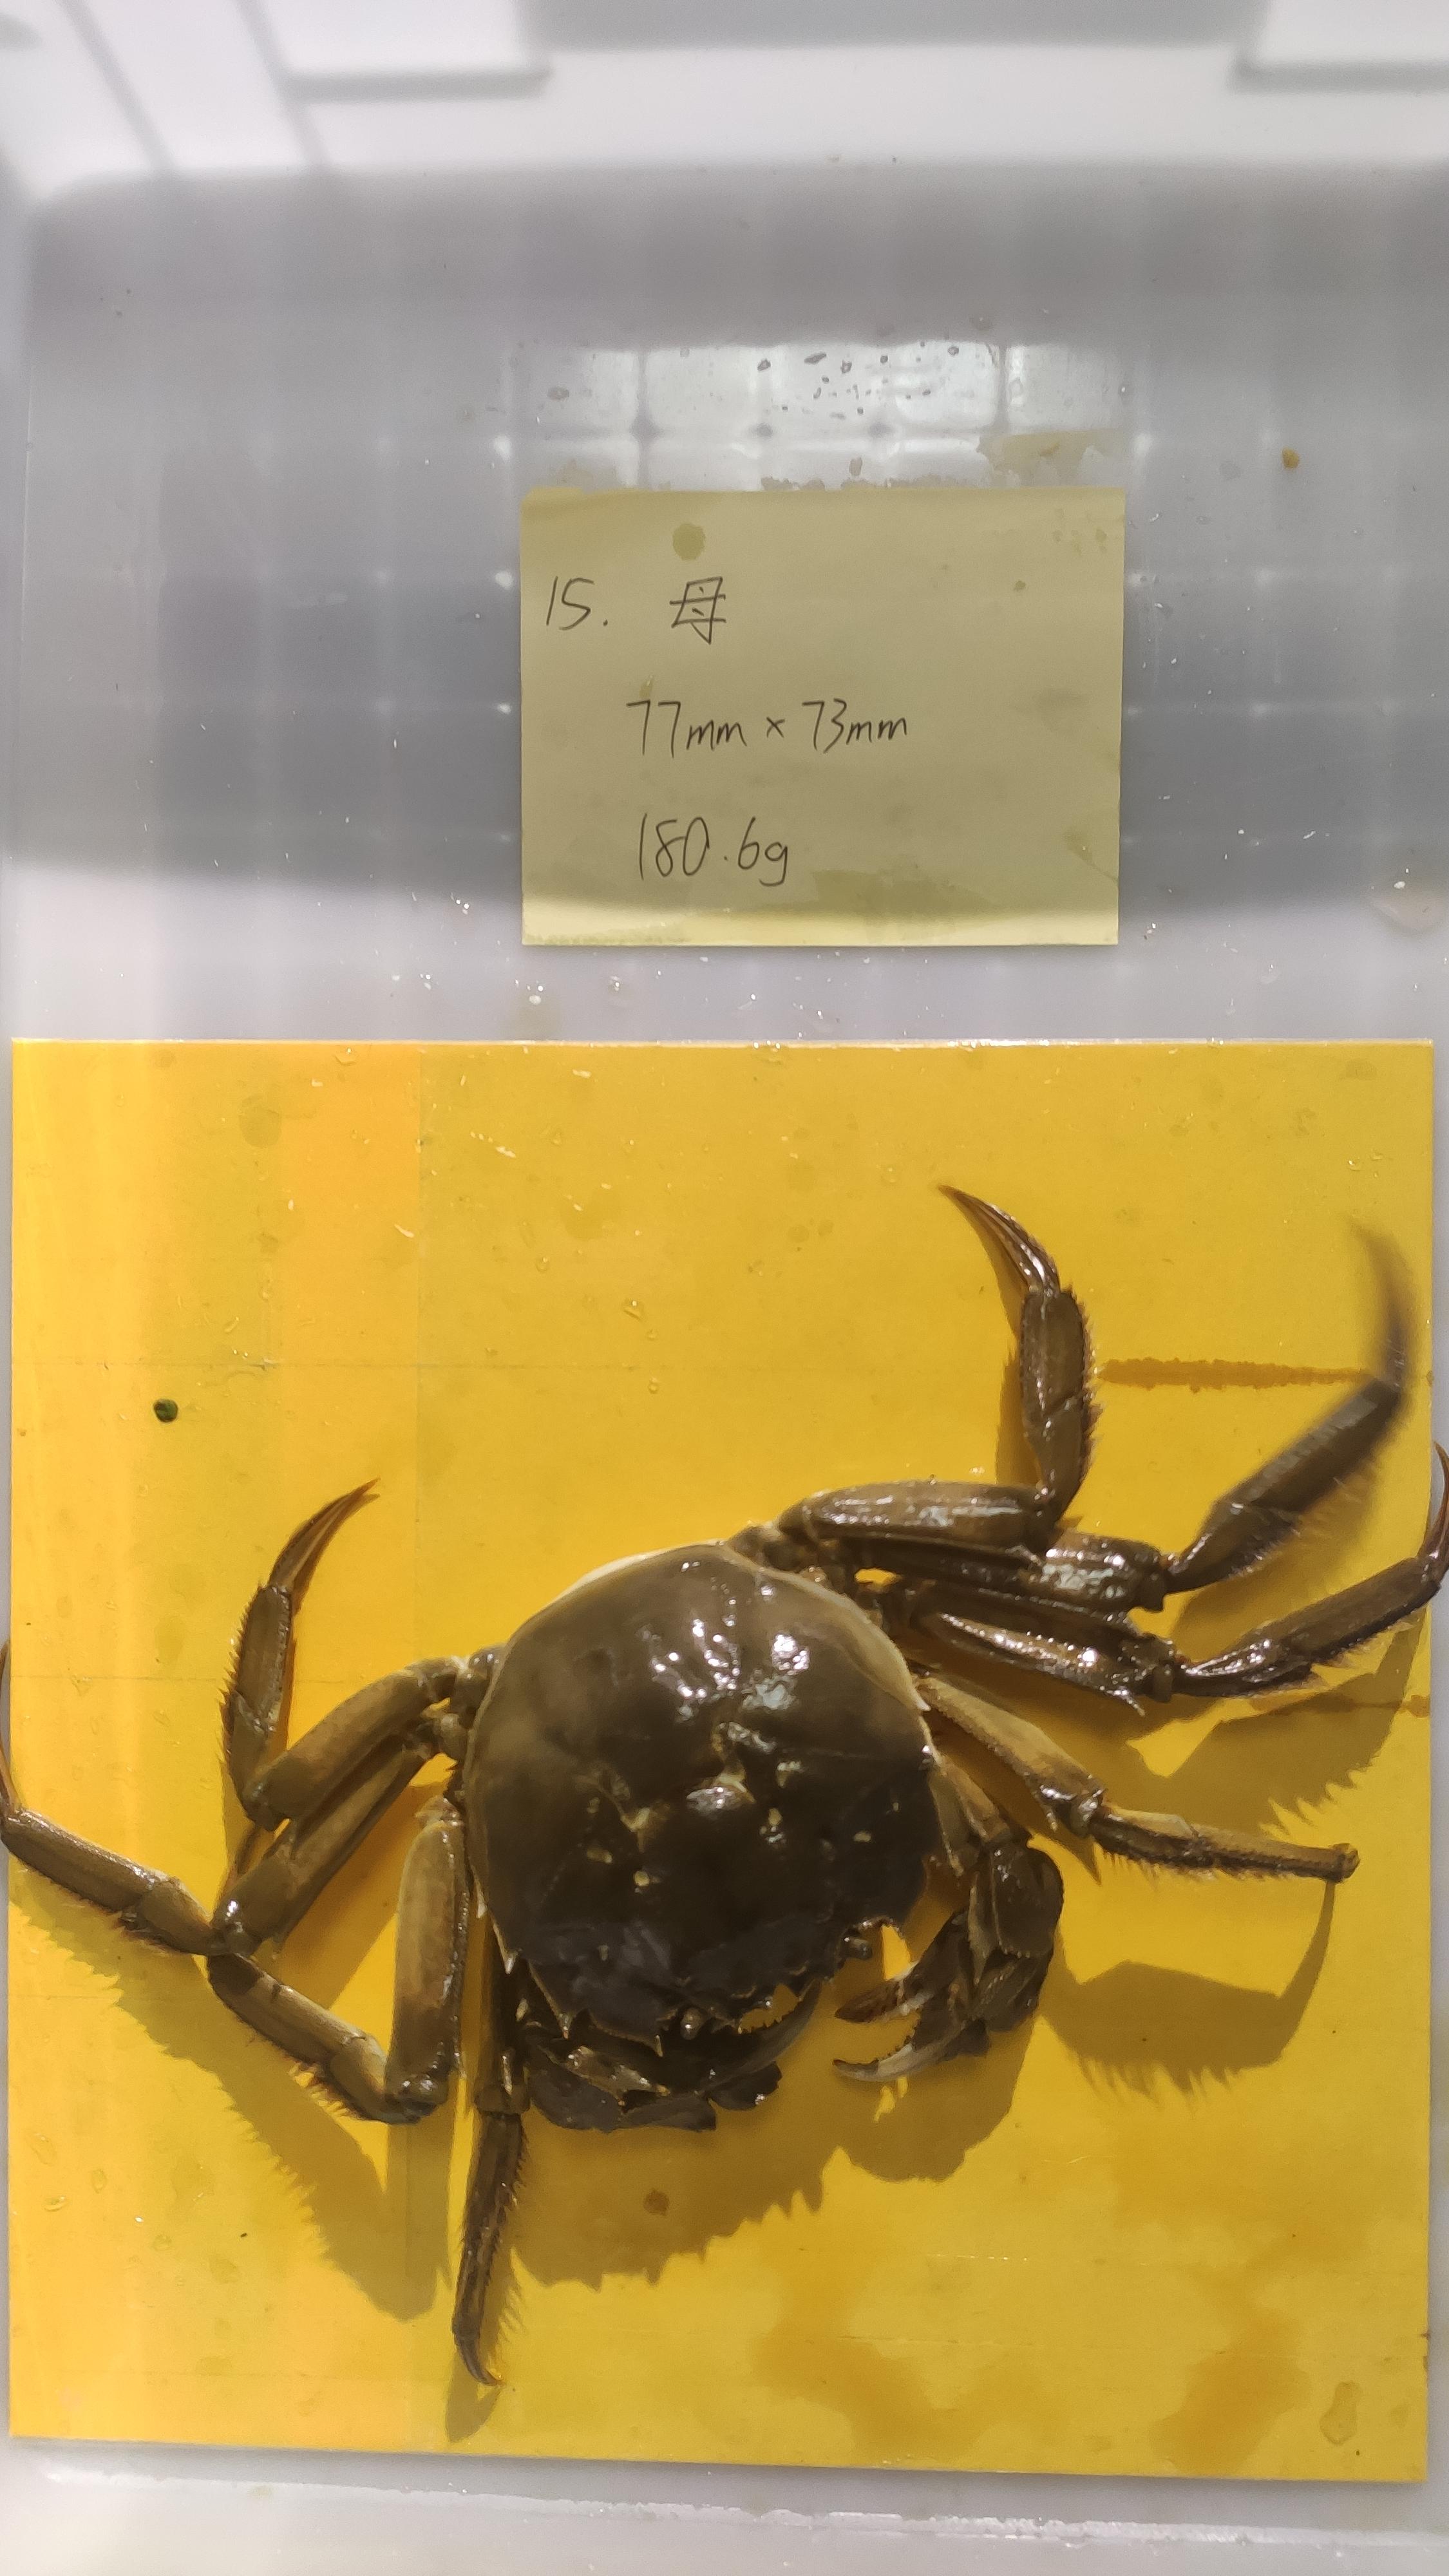 15. 母
77mm × 73mm
180.6g